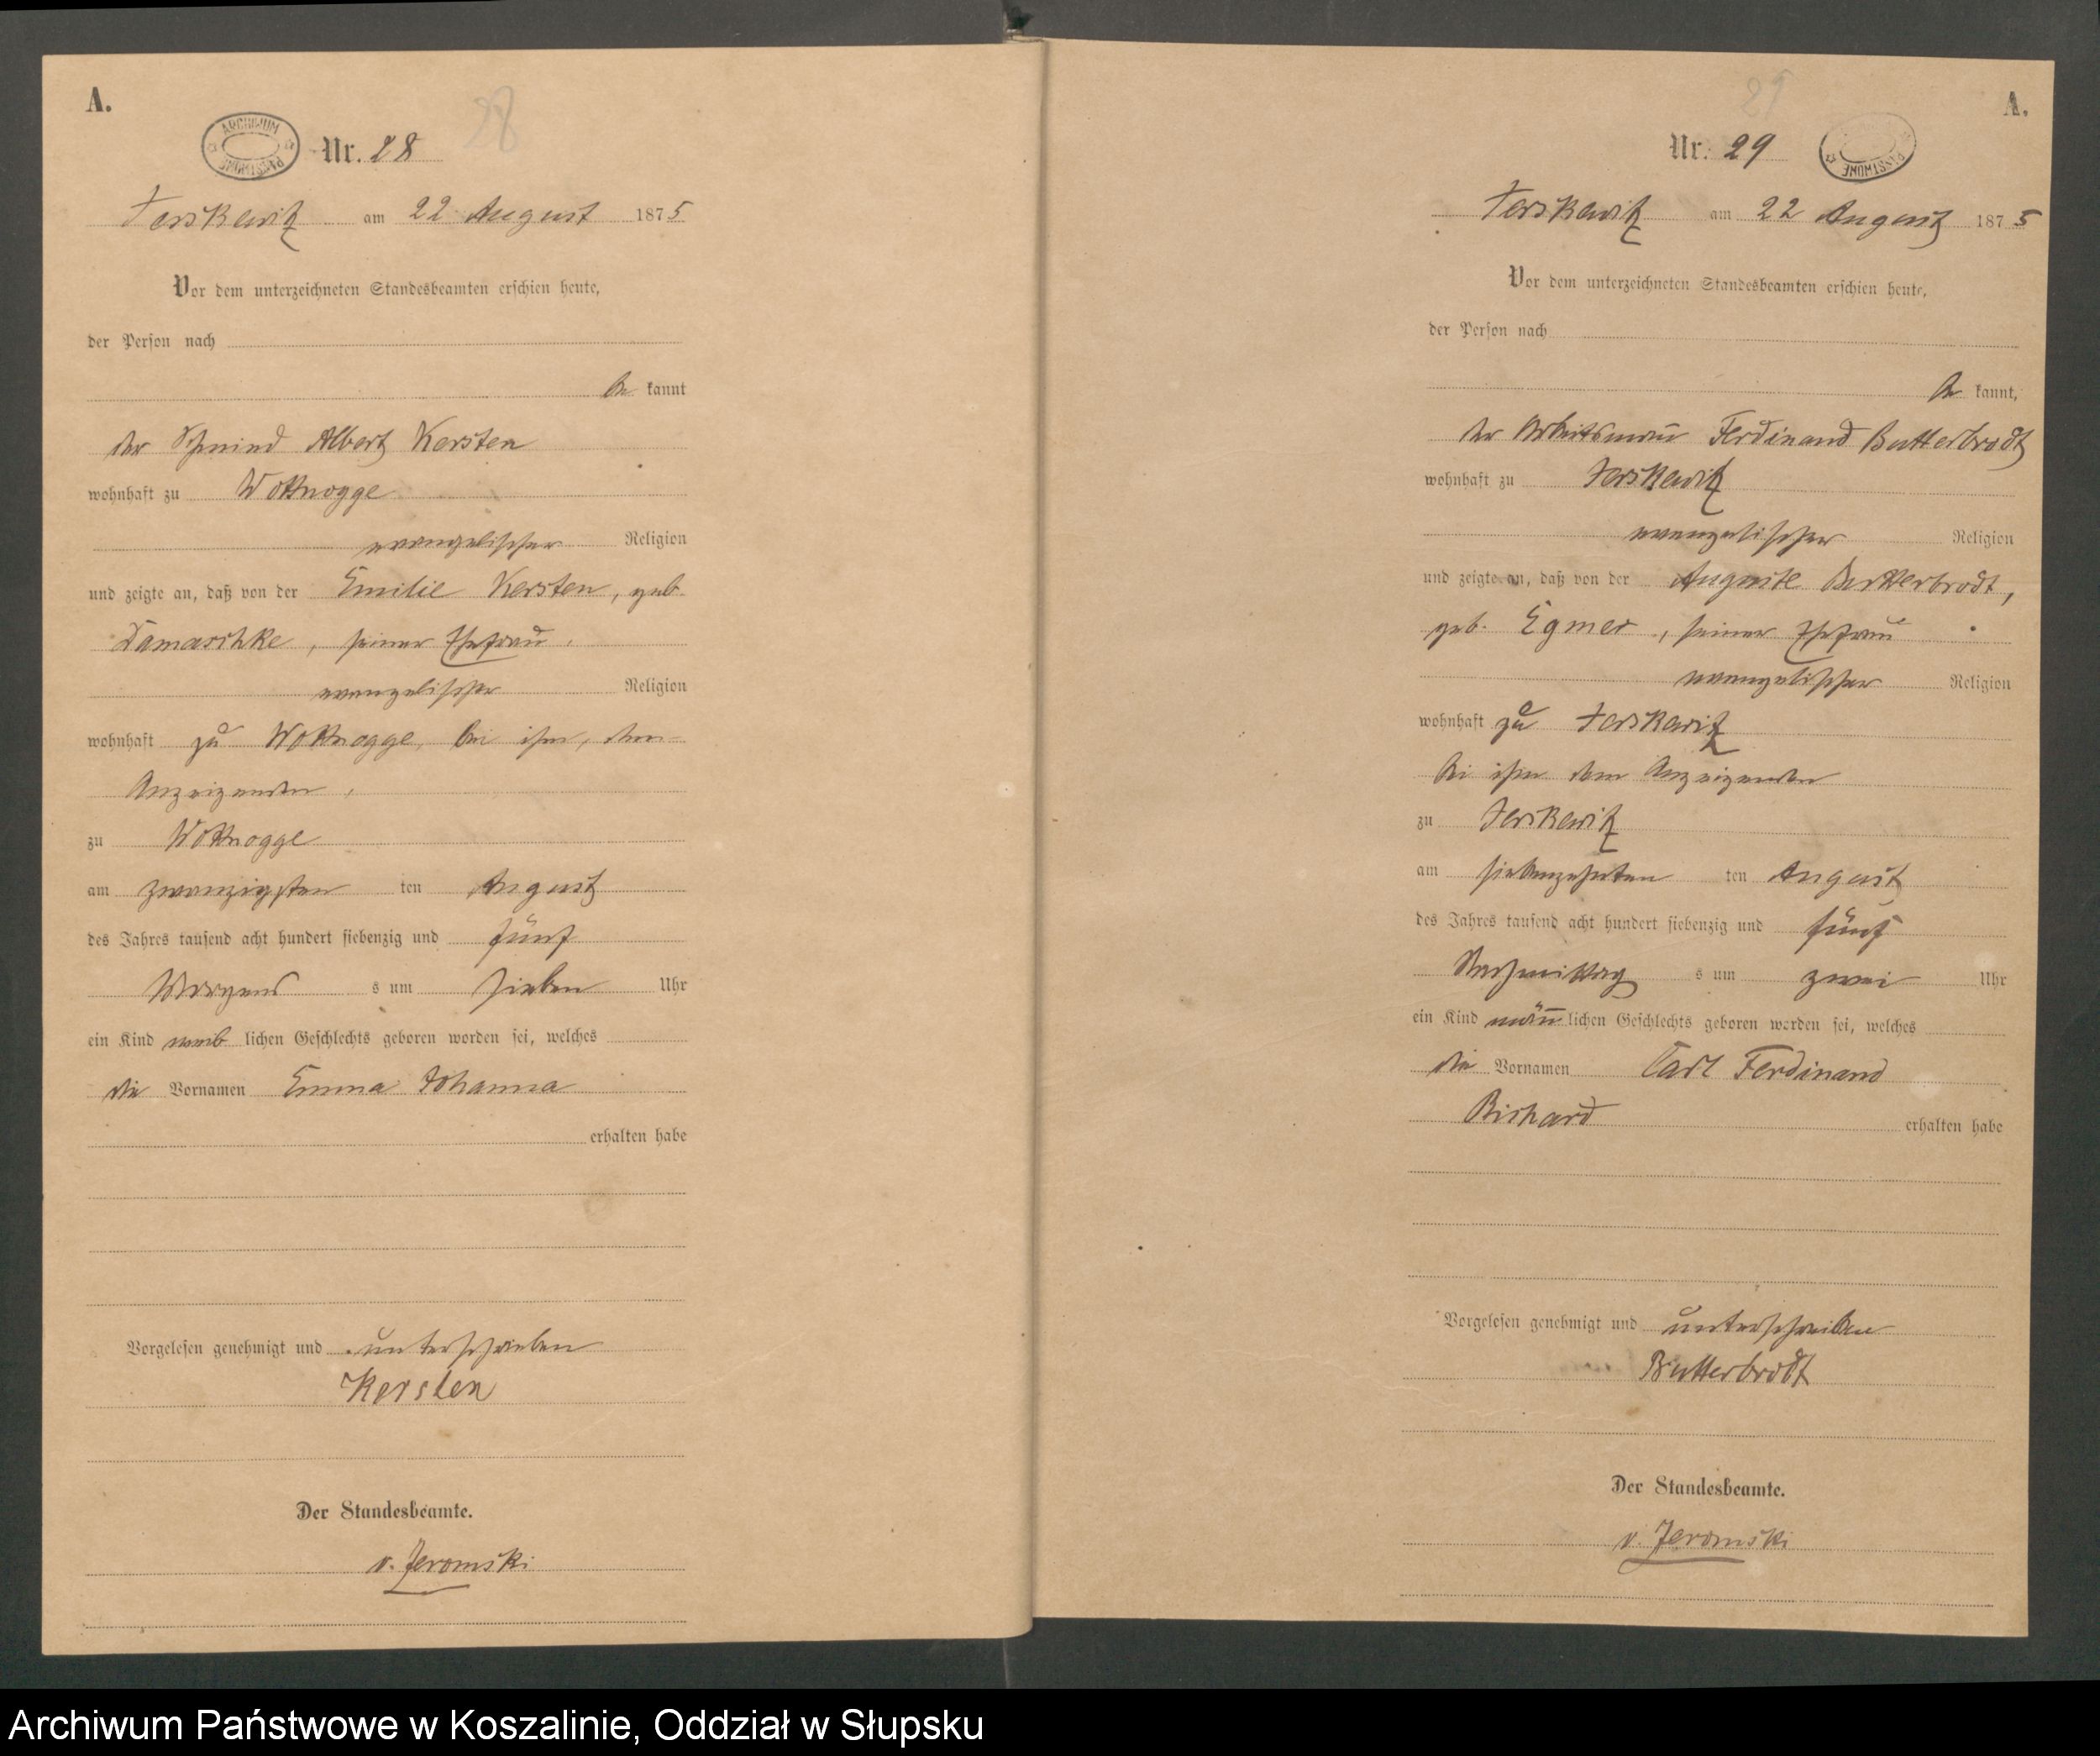 A.
ARCHIWUM PAŃSTWOWE
Nr. 28
28
Jerskewitz am 22 August 1875
Vor dem unterzeichneten Standesbeamten erschien heute,
der Person nach
be kannt
der Schmied Albert Kersten
wohnhaft zu Wottnogge
evangelischer Religion
und zeigte an, daß von der Emilie Kersten, geb.
Damaschke, seiner Ehefrau,
evangelischer Religion
wohnhaft zu Wottnogge, bei ihm, dem
Anzeigenden,
zu Wottnogge
am zwanzigsten ten August
des Jahres tausend acht hundert siebenzig und fünf
Morgens s um sieben Uhr
ein Kind weib lichen Geschlechts geboren worden sei, welches
die Vornamen Emma Johanna
erhalten habe
Vorgelesen genehmigt und unterschrieben
Kersten
Der Standesbeamte.
v. Jeromski
A.
29
Nr. 29
PAŃSTWOWE
Jerskewitz am 22 August 1875
Vor dem unterzeichneten Standesbeamten erschien heute,
der Person nach
be kannt,
der Arbeitsmann Ferdinand Butterbrodt
wohnhaft zu Jerskewitz
evangelischer Religion
und zeigte an, daß von der Auguste Butterbrodt,
geb. Egmer, seiner Ehefrau
evangelischer Religion
wohnhaft zu Jerskewitz
bei ihm dem Anzeigenden
zu Jerskewitz
am siebenzehnten ten August
des Jahres tausend acht hundert siebenzig und fünf
Nachmittag s um zwei Uhr
ein Kind männ lichen Geschlechts geboren worden sei, welches
die Vornamen Carl Ferdinand
Richard erhalten habe
Vorgelesen genehmigt und unterschrieben
Butterbrodt
Der Standesbeamte.
v. Jeromski
Archiwum Państwowe w Koszalinie, Oddział w Słupsku